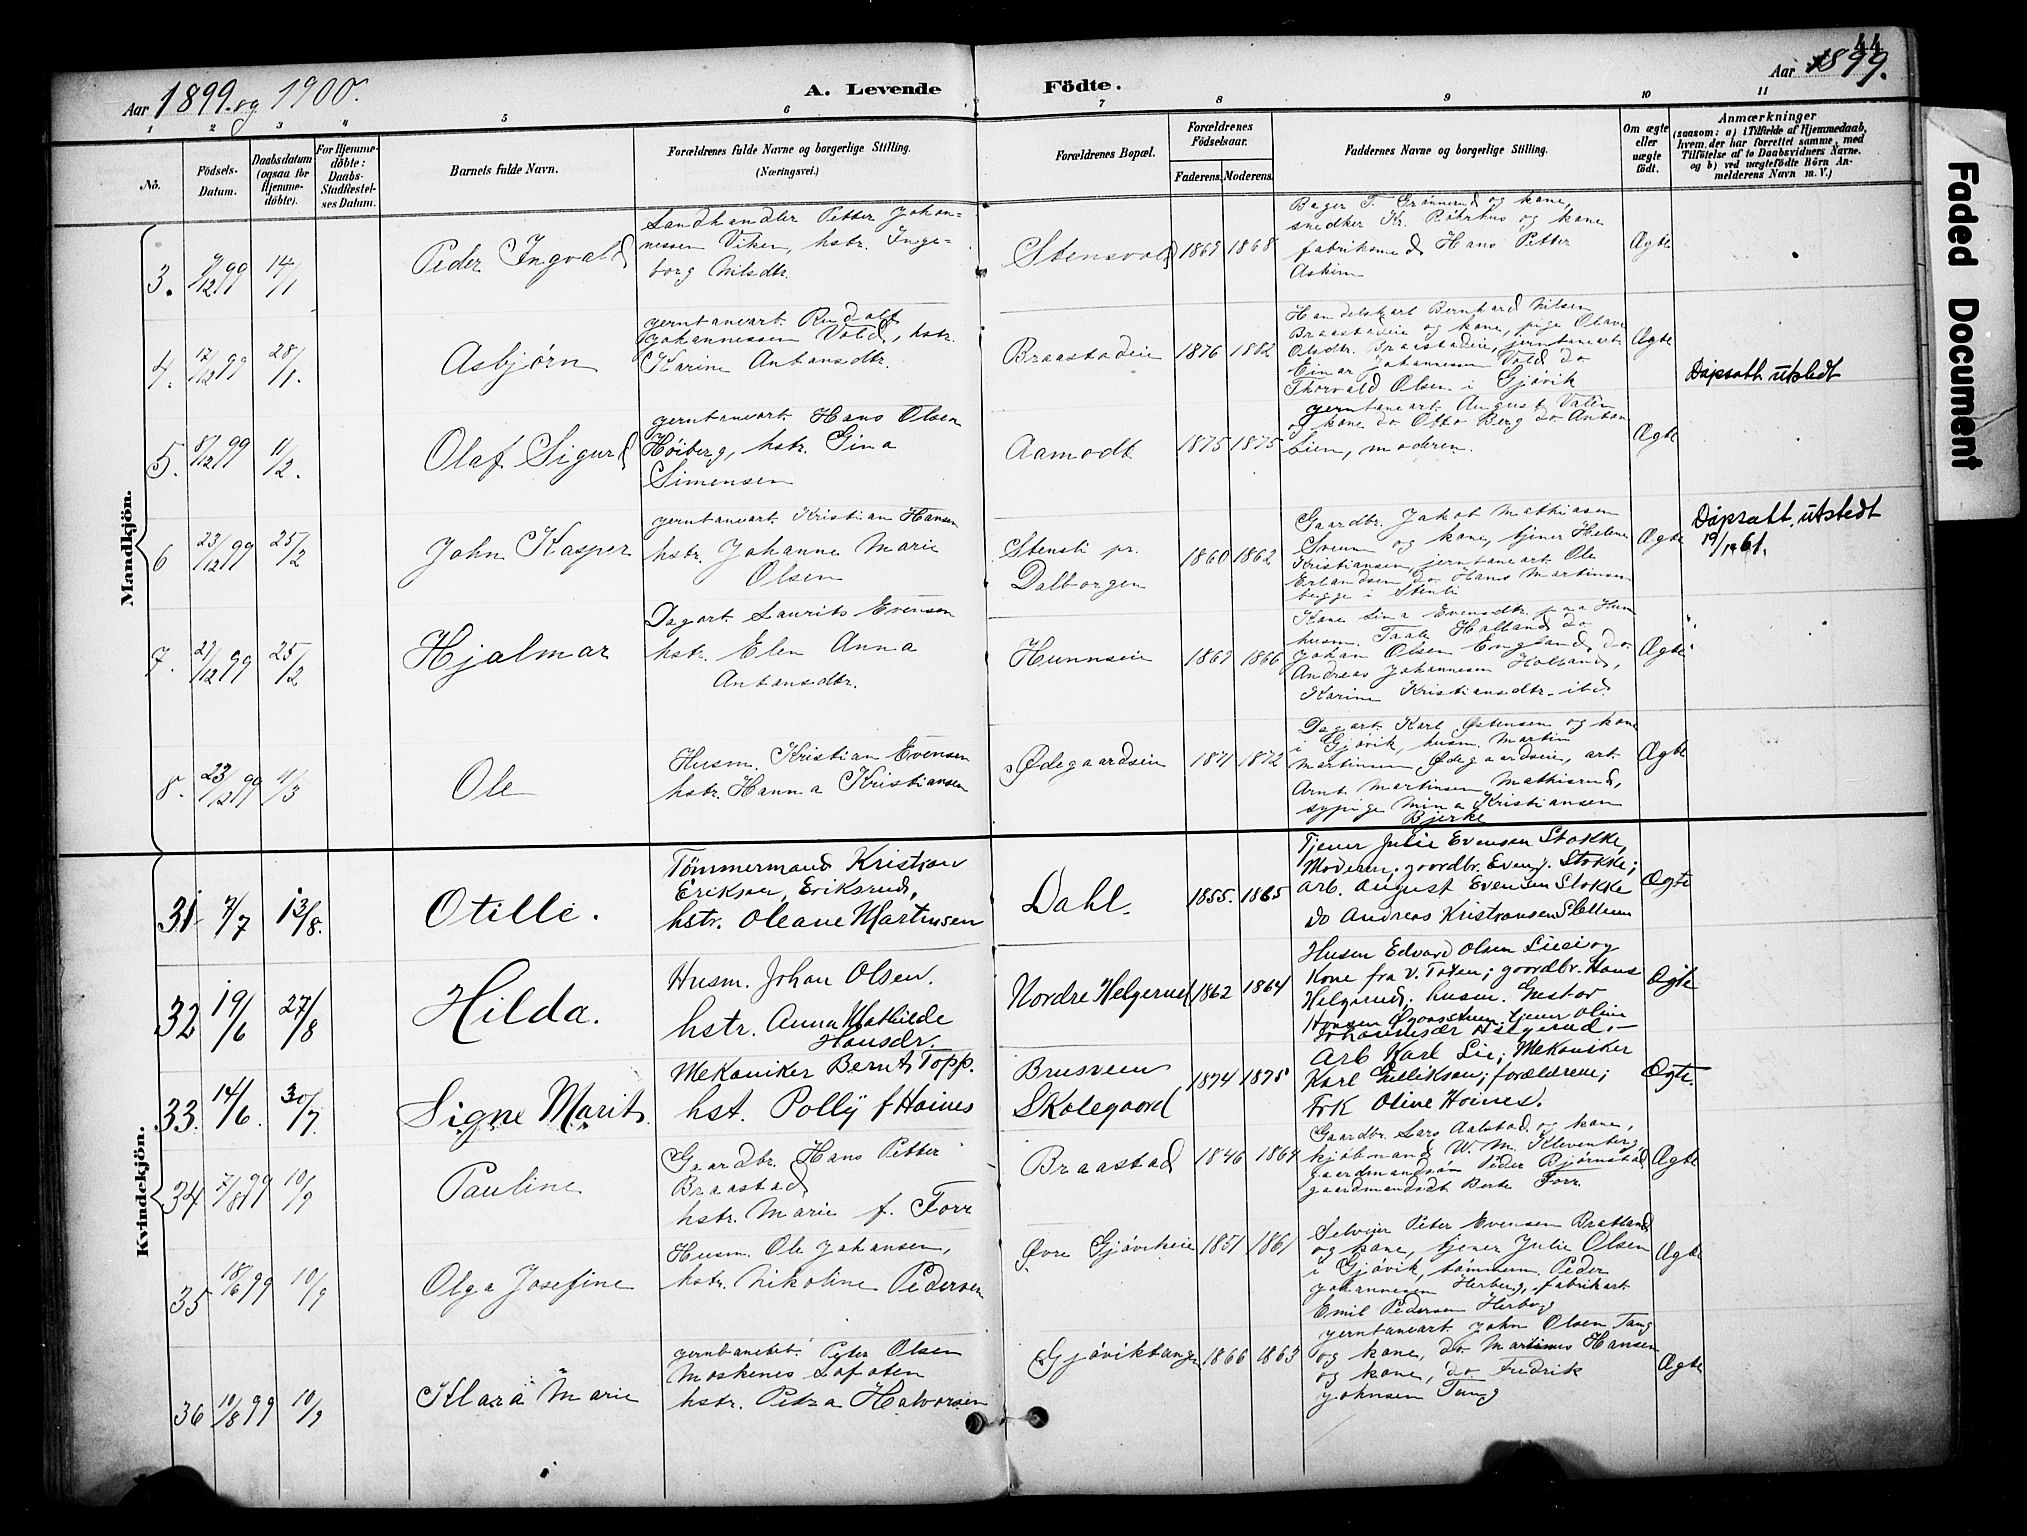 44
Aar 1899. og 1900.
A. Levende
Födte.
Aar 1899.
1 2 3 4 5 6 7 8 9 10 11
No.
Födsels-
Datum.
Daabsdatum
(ogsaa for
Hjemme-
döbte).
For Hjemme-
döbte:
Daabs-
Stadfæstel-
ses Datum.
Barnets fulde Navn.
Forældrenes fulde Navne og borgerlige Stilling.
(Næringsvei.)
Forældrenes Bopæl.
Forældrenes
Födselsaar.
Faderens. Moderens.
Faddernes Navne og borgerlige Stilling.
Om ægte
eller
uægte
födt.
Anmærkninger
(saasom: a) i Tilfælde af Hjemmedaab,
hvem der har forrettet samme, med
Tilföielse af to Daabsvidners Navne.
og b) ved uægtefödte Börn An-
melderens Navn m. V.)
Mandkjön.
3. 9/12 99 14/1
Peder Ingvald
Landhandler Petter Johan-
nessen Viken, hstr. Inge-
borg Nilsdtr.
Stensvold 1869 1868
Bager T. Grønnerud og kane,
snedker Kr. Røhrhus og kane
fabriksmed Hans Petter
Askim
Ægte
4. 17/12 99 28/1.
Asbjørn
jerntanvart. Rudolf
Johannessen Vold, hstr.
Karine Antonsdtr.
Braastadeie 1876 1882
Handelskart Bernhard Nilsen
Braastadeie og kone, pige Olave
Olsdtr. Braastadeie, jerntanvart
Einar Johannessen Vold do
Thorvald Olsen i Gjøvik
Ægte
Dåpsatt. utstedt
5. 8/12 99 11/2.
Olaf Sigurd
jerntanvart. Hans Olsen
Høiberg, hstr. Gina
Simensen
Aamodt 1875 1875
jerntanvart. August Valen
og kone do Otto Berg do Anton
Lien, moderen.
Ægte
6 23/12 99 25/2
John Kasper
jerntanvart. Kristian Hansen
hstr. Johanne Marie
Olsen
Stensli pr.
Dalborgen
1860 1862
Gaardbr. Jakob Mathiasen
Sveum og kane, tjener Helene
Kristiansen, jerntanvart Ole
Erlandsen do Hans Martinsen
begge i Stensli
Ægte
Dåpsatt. utstedt
19/12 61.
7. 21/12 99 25/2
Hjalmar
Dagart. Laurits Evensen
hstr. Elen Anna
Antonsdtr.
Hunnseie 1867 1866
Kane Lina Evensdtr. paa Hun
husm. Taale Holland do
Johan Olsen England, do.
Andreas Johannesen Holland,
Karine Kristiansdtr. ibd.
Ægte
8. 23/12 99 4/3
Ole
Husm. Kristian Evensen
hstr. Hanna Kristiansen
Ødegaardseie 1871 1872
Dagart. Karl Østensen og kane
i Gjøvik, husm. Martin
Martinsen Ødegaardseie, art.
Arnt Martinsen Mathisrud,
sypige Mina Kristiansen
Bjerke
Ægte
Kvindekjön.
31. 7/7 13/8.
Otilie.
Tömmermand Kristian
Eriksen, Eriksrud,
hstr. Oleane Martinsen
Dahl. 1855. 1865
Tjener Julie Evensen Stokke,
Moderen; gaardbr. Even J. Stokke;
arb. August Evensen Stokke
Do Andreas Kristiansen Slettum
Ægte
32 19/6 27/8
Hilda.
Husm. Johan Olsen.
hstr. Anna Mathilde
Hansdr.
Nordre Helgerud 1862 1864
Husm Edvard Olsen Lieei og
Kone fra V. Toten; gaardbr. Hans
Helgerud; husm. Gustav
Hansen tjener Oline
Johannesdr Helgerud.
Ægte
33. 14/6. 30/7.
Signe Marit.
Mekaniker Bernt Topp.
hst. Polly f Hoines
Brusveen
Skolegaard
1874 1875
Arb Karl Lie; Mekaniker
Karl Gulliksen; forældrene;
Frk Oline Hoines.
Ægte.
34 7/8 99 10/9
Pauline
Gaardbr. Hans Petter
Braastad,
hstr. Marie f. Forr
Braastad 1846 1864
Gaardbr. Lars Aalstad og kane,
kjøbmand W. M. Klevenberg,
gaardmandsøn Peder Bjørnstad
gaardmandsdt Berte Forr.
Ægte
35 18/6 99 10/9
Olga Josefine
Husm. Ole Johansen,
hstr. Nikoline Pedersen
Øvre Gjøvikeie 1851 1861
Selveier Peter Evensen Bratland
og kane, tjener Julie Olsen
i Gjøvik, tømmerm. Peder
Johannesen Herberg, fabrikart
Emil Pedersen Herberg
Ægte
36 10/8 99 10/9
Klara Marie
jerntanebet. Peter Olsen
Moskenes Lofoten
hstr. Petra Halvorsen
Gjøviktange 1866 1863
jerntanvart. John Olsen Tang
og kane, do Martinus Hansen
og kane, do Fredrik
Johnsen Tang
Ægte
Faded Document